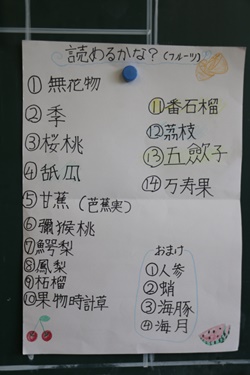 読めるかな？(フルーツ)
①無花物
②季
③桜桃
④舐瓜
⑤甘蕉（芭蕉実）
⑥獼猴桃
⑦鰐梨
⑧鳳梨
⑨柘榴
⑩果物時計草
⑪番石榴
⑫荔枝
⑬五歛子
⑭万寿果
おまけ
①人参
②蛸
③海豚
④海月